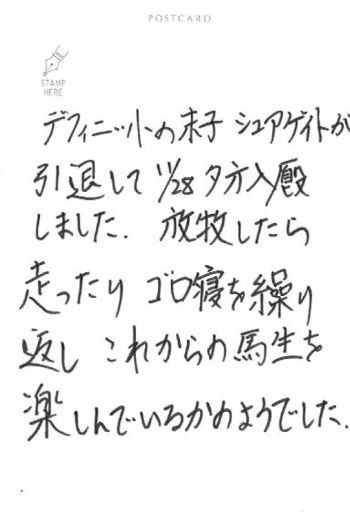 POSTCARD
STAMP
HERE
デフィニットの末子 シュアゲイトが
引退して 11/28 夕方入厩
しました. 放牧したら
走ったり ゴロ寝を繰り
返し これからの馬生を
楽しんでいるかのようでした.